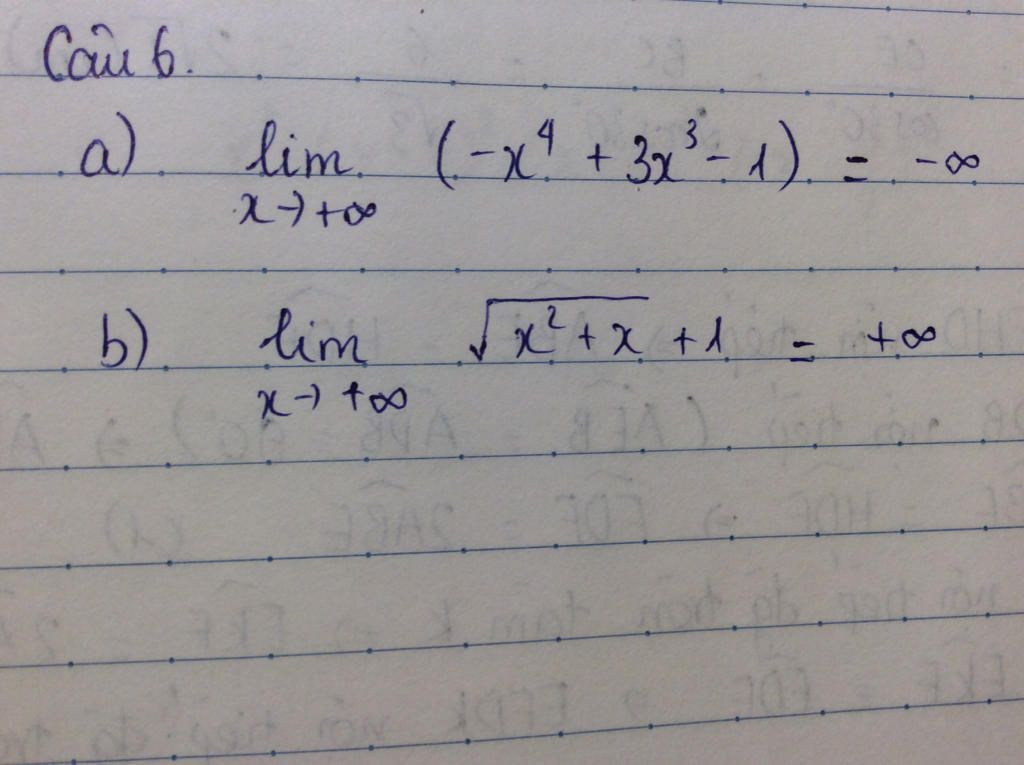 Câu 6.
a) lim (-x⁴ + 3x³ - 1) = -∞
x→+∞
b) lim √(x² + x) + 1 = +∞
x→ +∞